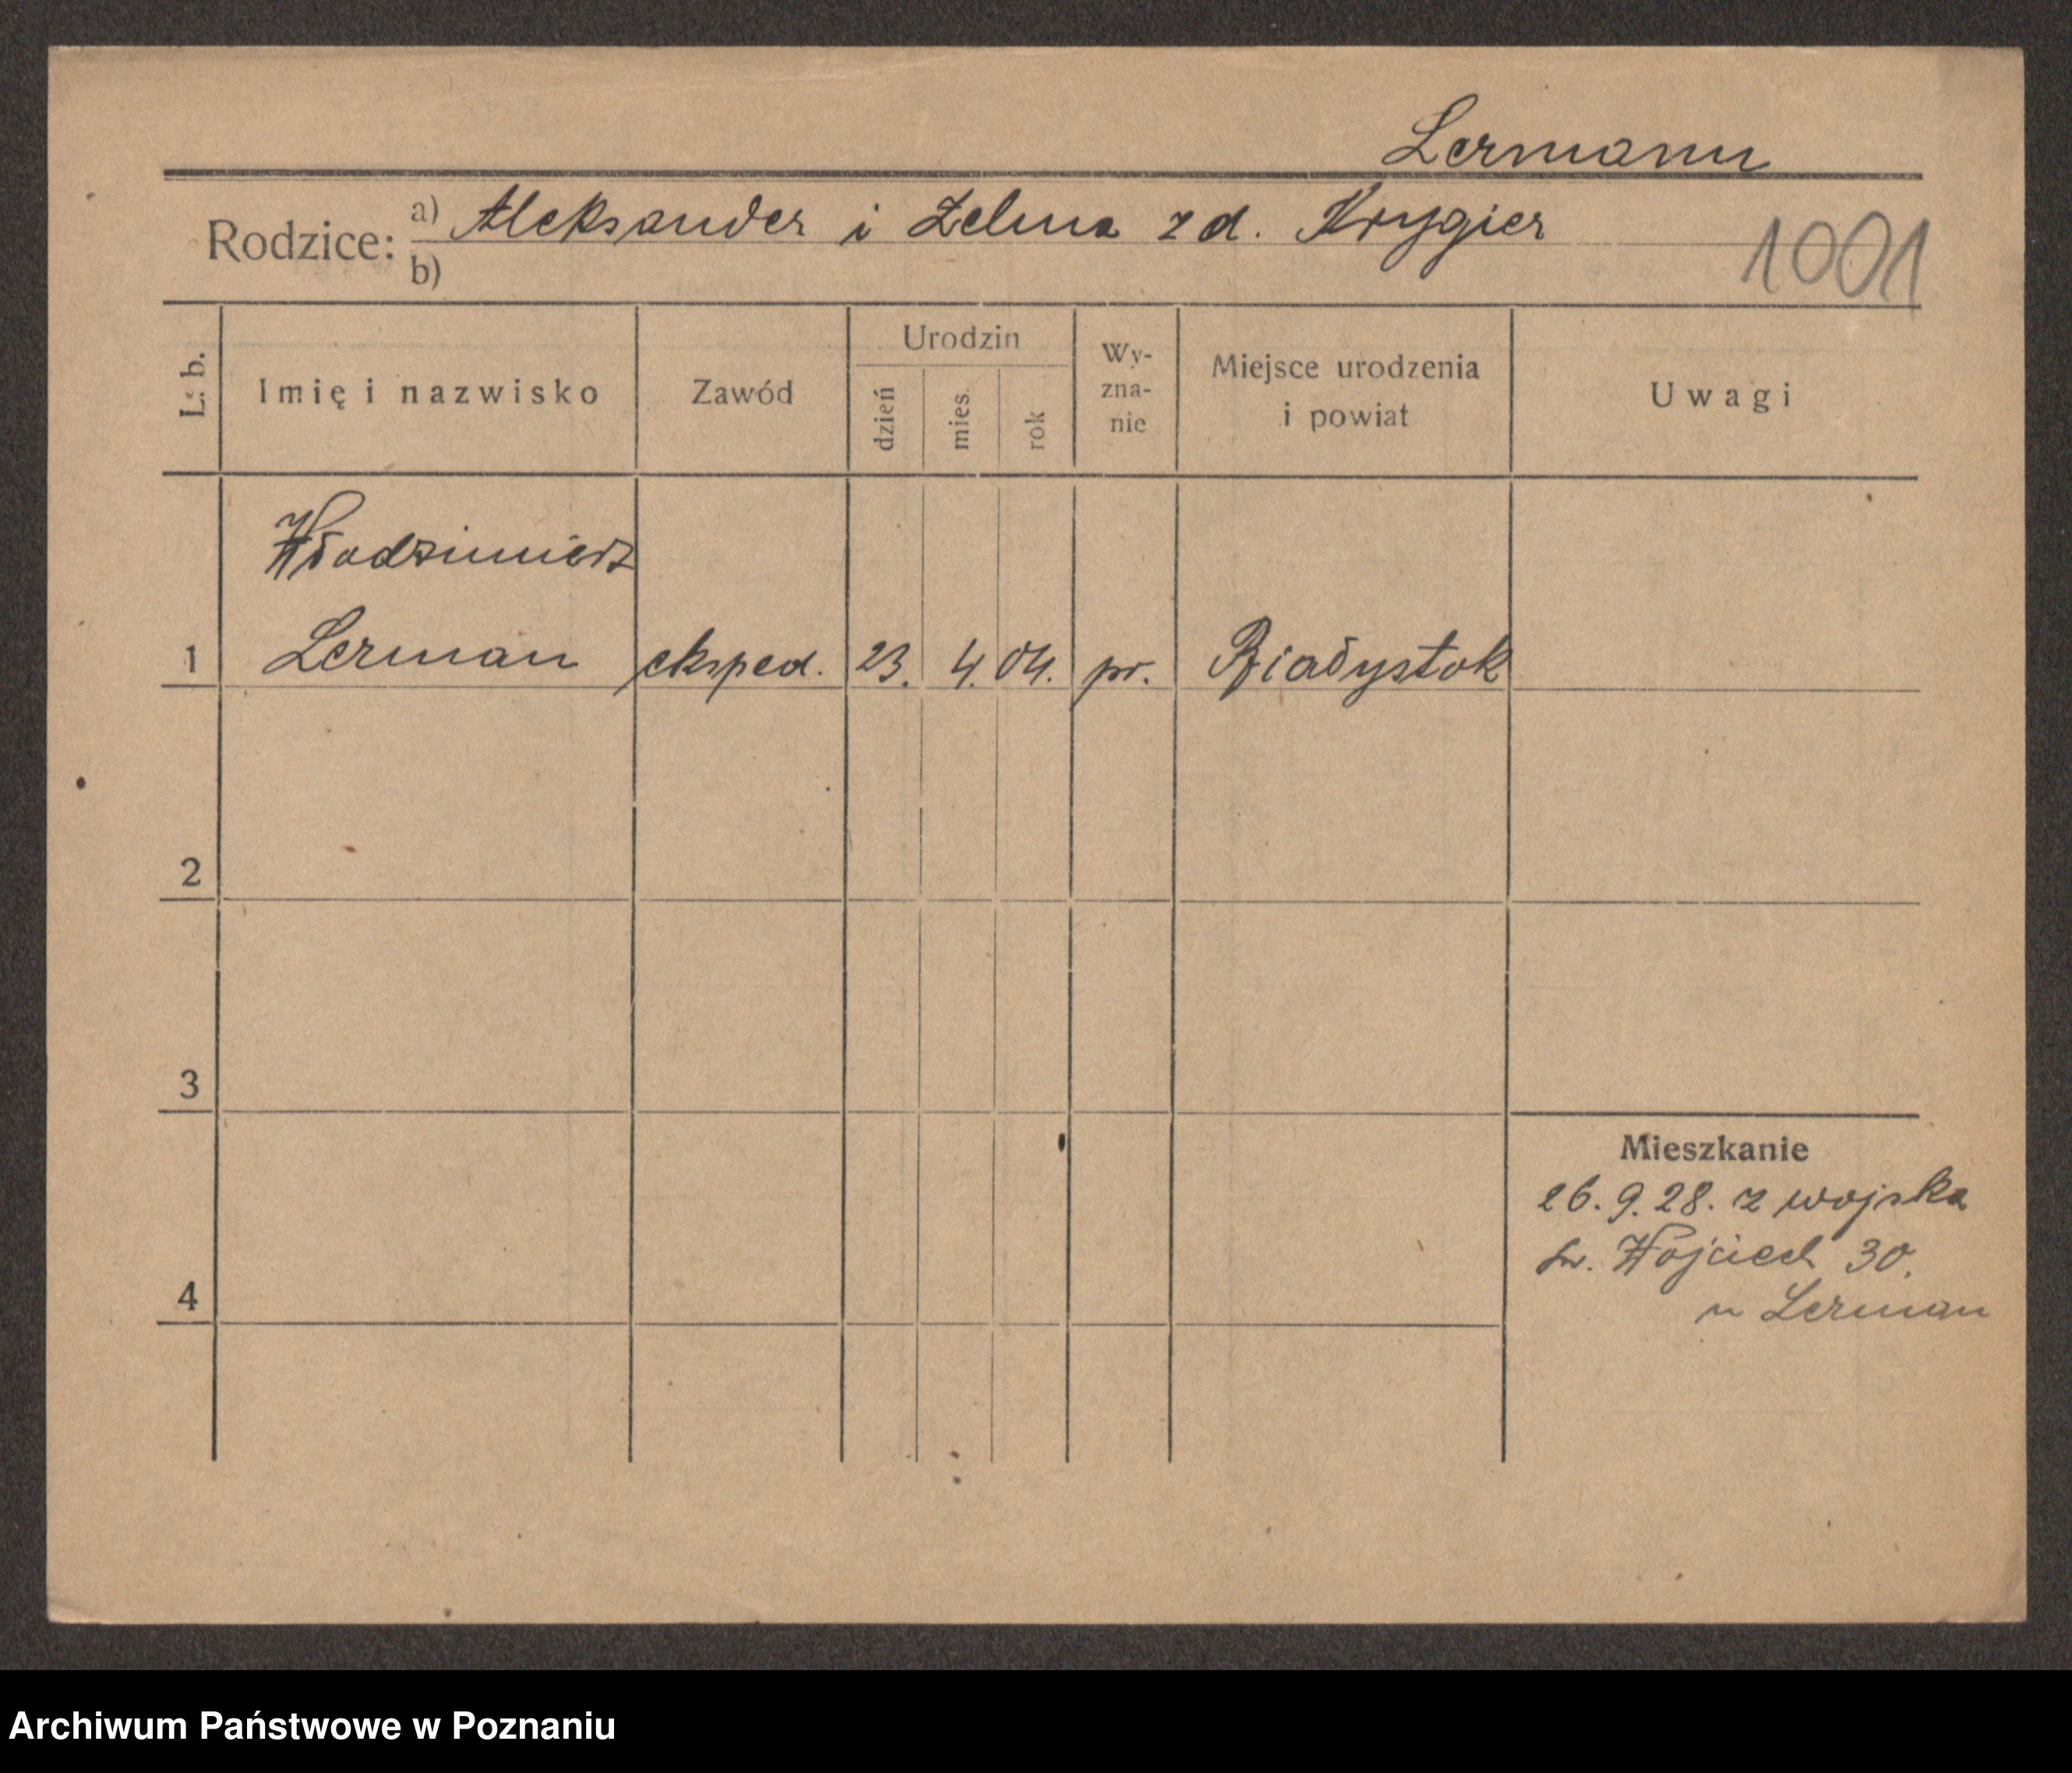 Lermann
Rodzice: a) Aleksander i Zelma z d. Krygier
b)
1001
L. b. Imię i nazwisko Zawód Urodzin dzień mies. rok Wy-zna-nie Miejsce urodzenia i powiat Uwagi
Włodzimierz
1 Lerman eksped. 23. 4. 04. pr. Białystok
2
3
Mieszkanie
26. 9. 28. z wojska
św. Wojciech 30.
4
u Lerman
Archiwum Państwowe w Poznaniu